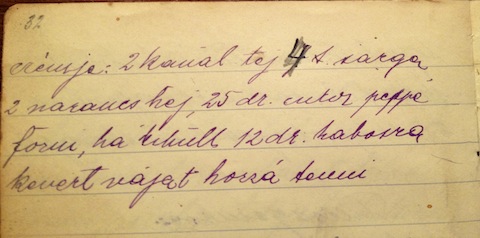 32
crémje: 2 kanál tej 4 t. sárga
2 narancs hej, 25 dr. cukor peppé
forni, ha kihült 12 dr. habosra
kevert vájat hozzá tenni